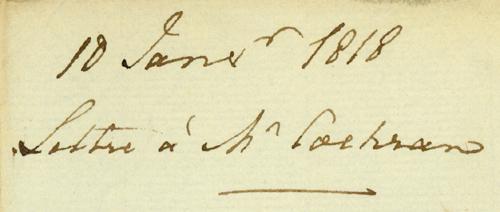 10 Janvr 1818
Lettre à Mr Cochran